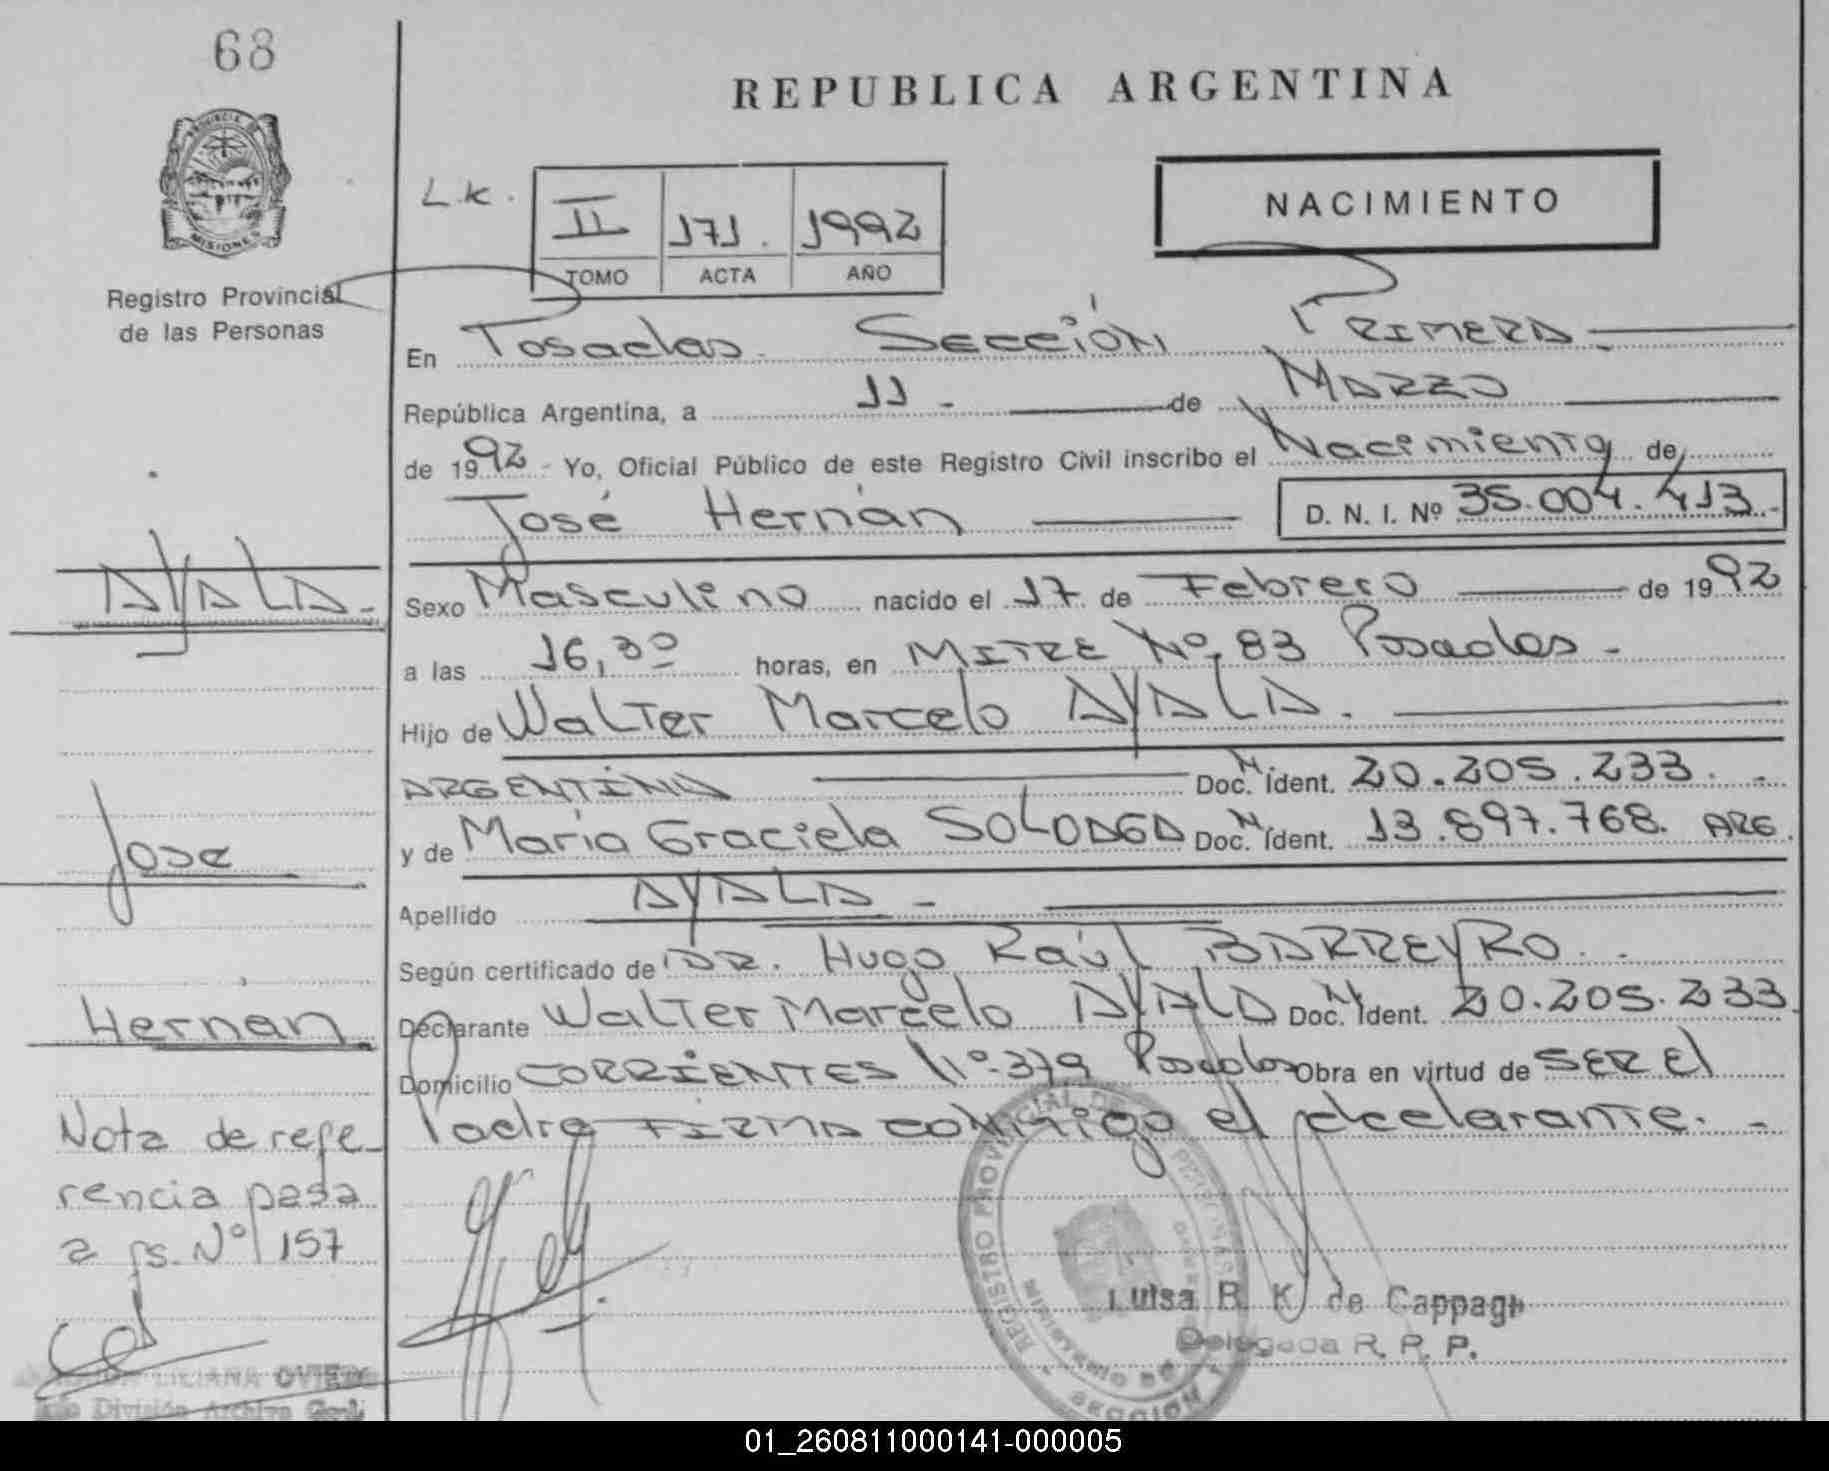 68
REPUBLICA ARGENTINA
PROVINCIA DE
MISIONES
Registro Provincial
de las Personas
L.K.
II 171. 1992
TOMO ACTA AÑO
NACIMIENTO
En Posadas Sección Primera.
República Argentina, a 11 - de Marzo
de 1992 - Yo, Oficial Público de este Registro Civil inscribo el Nacimiento de
José Hernán
D. N. I. Nº 35.004.413.-
AYALA.-
Sexo Masculino nacido el 17 de Febrero de 1992
a las 16,30 horas, en MITRE Nº 83 Posadas -
Hijo de Walter Marcelo AYALA.
ARGENTINA Doc. N Ident. 20.205.233. -
y de María Graciela SOLODAGA Doc. N Ident. 13.897.768. ARG.
José
Apellido AYALA -
Según certificado de DR. Hugo Raúl BARREYRO. -
Hernán.
Declarante Walter Marcelo AYALA Doc. N Ident. 20.205.233
Domicilio CORRIENTES Nº 379 Posadas Obra en virtud de SER El
Padre FIRMA conmigo el declarante. -
Nota de refe-
rencia pasa
a fs. Nº 157
REGISTRO PROVINCIAL DE PERSONAS
SECCION
Luisa R. K. de Cappagli
Delegada R. P. P.
LILIANA OVIEDO
División Archivo Gral.
01_260811000141-000005